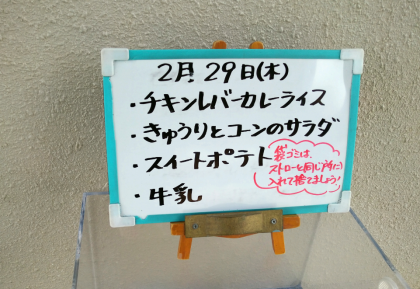 2月29日(木)
・チキンレバーカレーライス
・きゅうりとコーンのサラダ
・スイートポテト
・牛乳
袋ゴミは、
ストローと同じ所に
入れて捨てましょう!